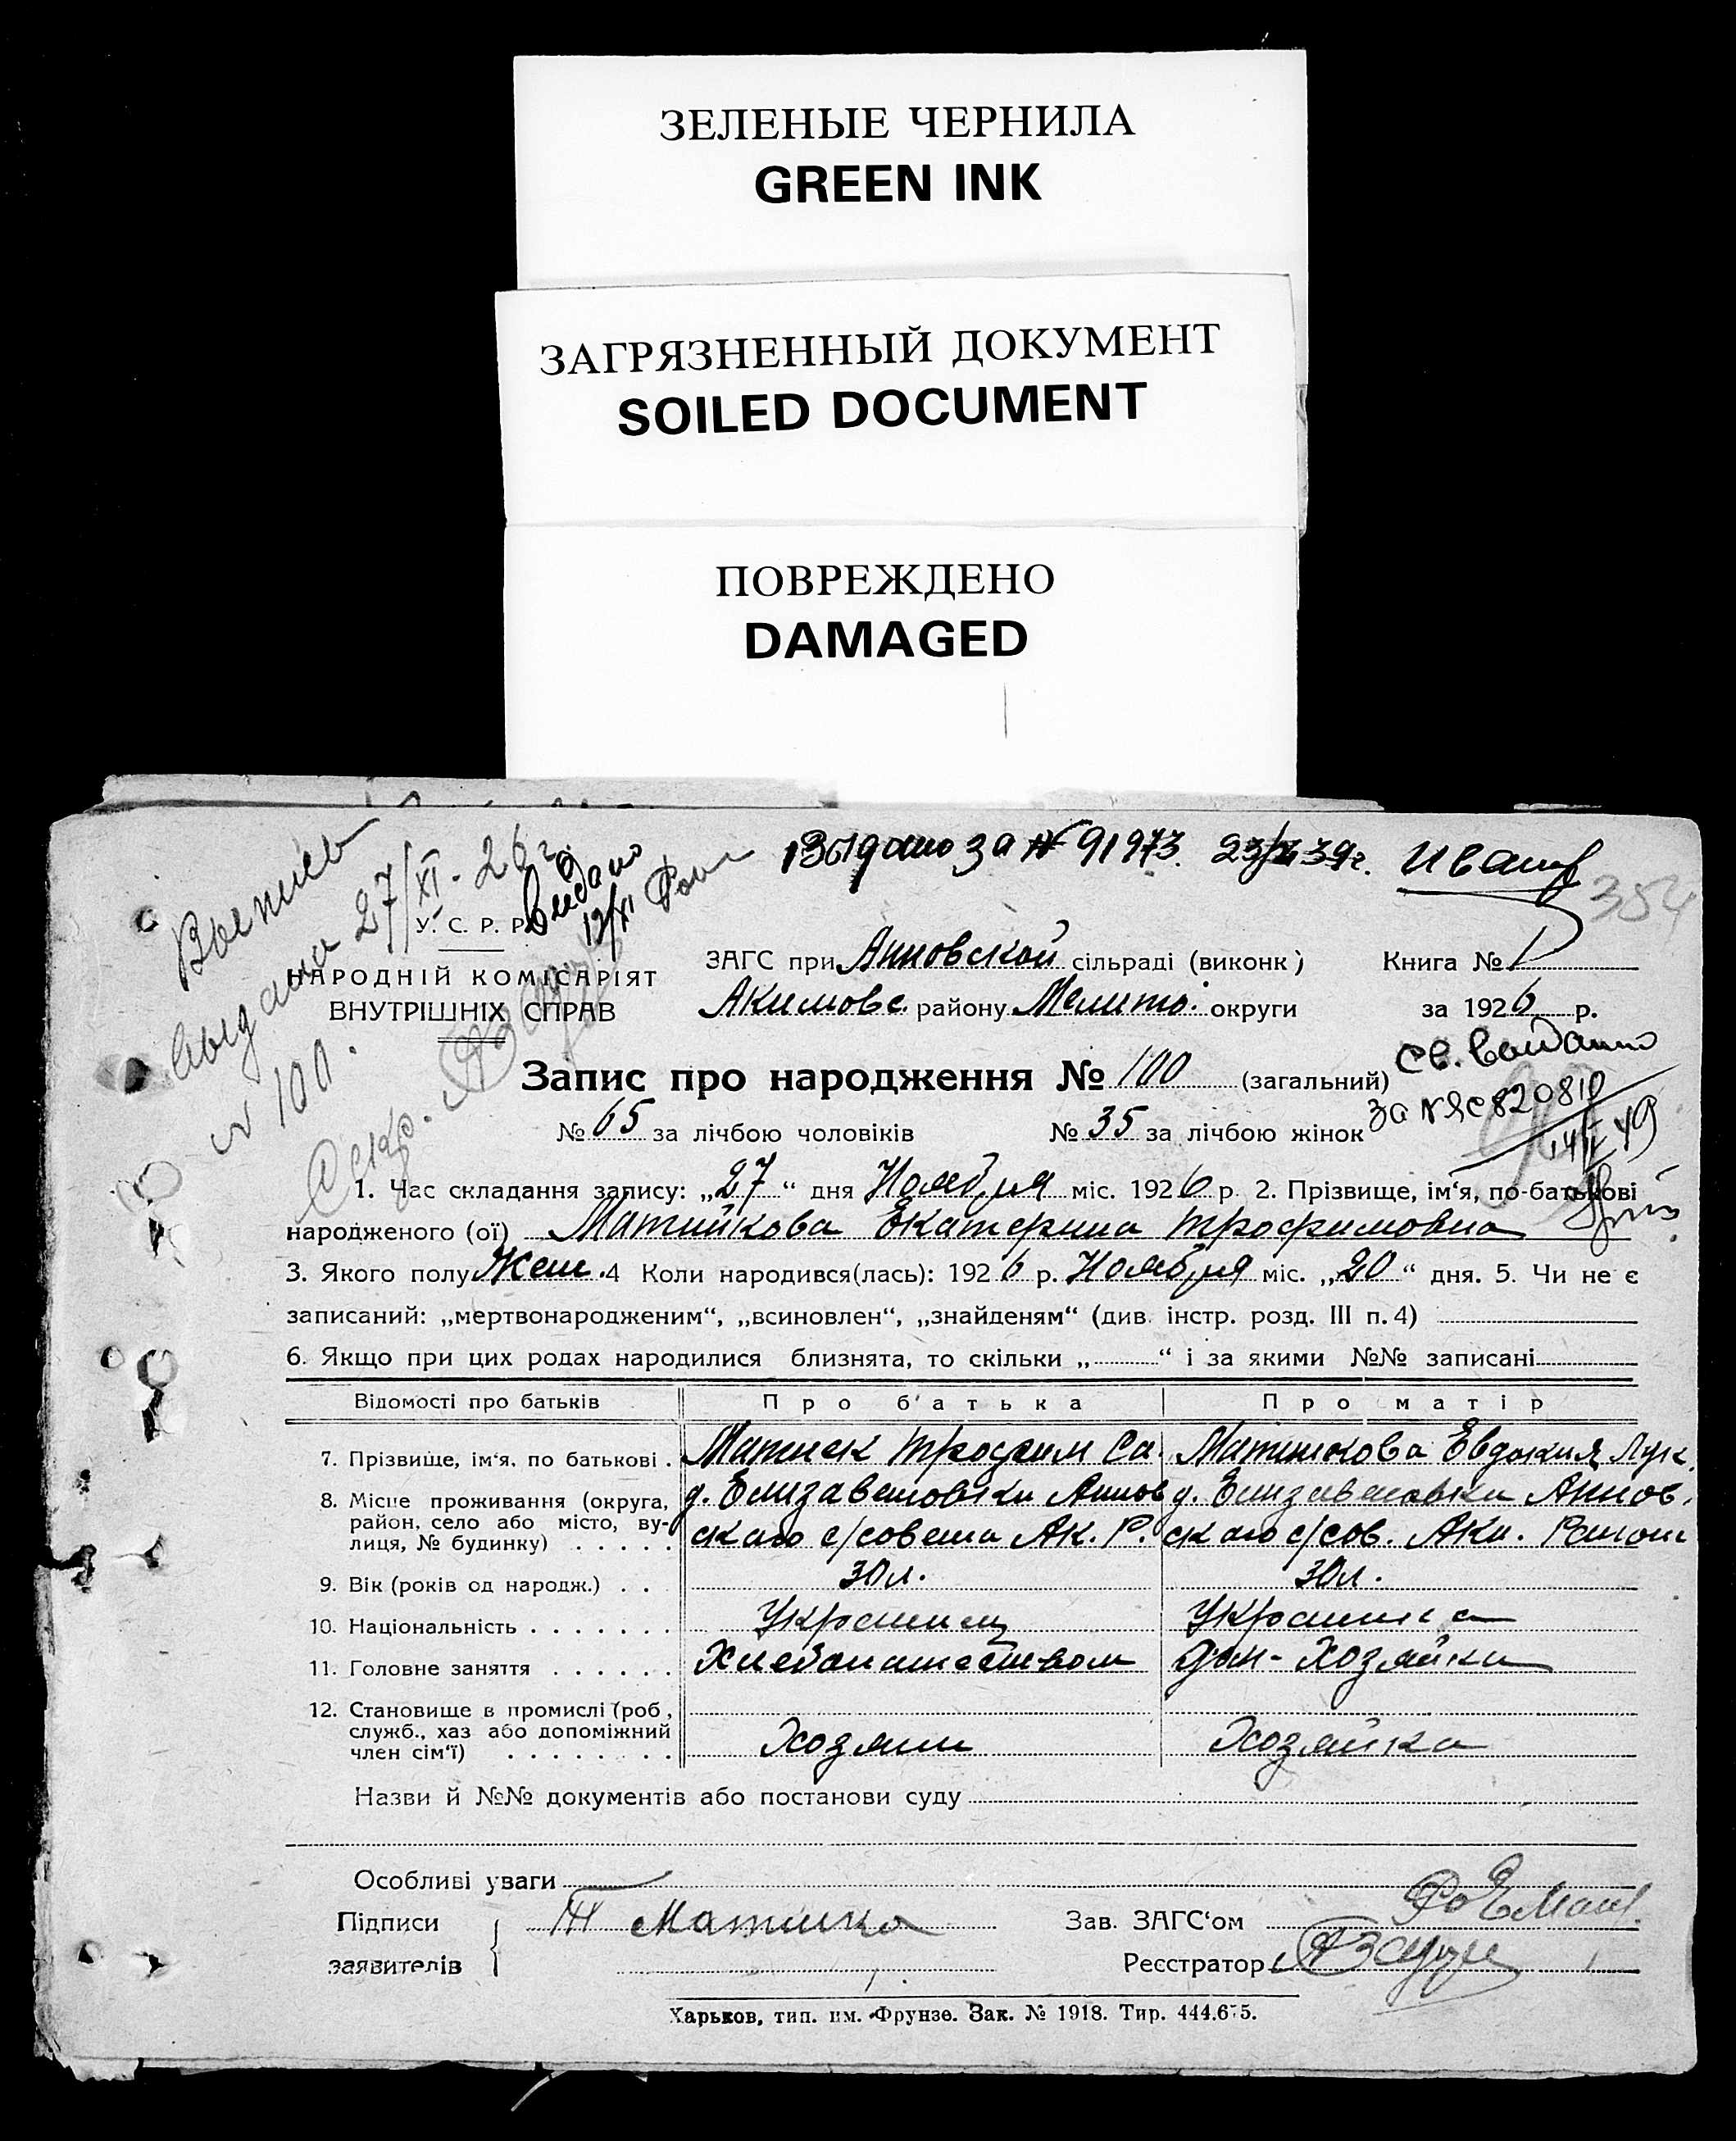 ЗЕЛЕНЫЕ ЧЕРНИЛА
GREEN INK
ЗАГРЯЗНЕННЫЙ ДОКУМЕНТ
SOILED DOCUMENT
ПОВРЕЖДЕНО
DAMAGED
Выдано за № 91973. 39г.
354
выдана 27/XI-26 г.
№ 100.
Видано
У. С. Р. Р.
НАРОДНІЙ КОМІСАРІЯТ
ВНУТРІШНІХ СПРАВ
Секр.
ЗАГС при Анновской сільраді (виконк) Книга № 1
Акимовс. району Мелито. округи за 1926 р.
Св. выдано
за № 820810
14/II 49
Запис про народження № 100 (загальний)
№ 65 за лічбою чоловіків № 35 за лічбою жінок
1. Час складання запису: „27“ дня Ноября міс. 1926 р. 2. Прізвище, ім‘я, по-батькові
народженого (ої) Матийкова Екатерина Трофимовна
3. Якого полу Жен. 4 Коли народився(лась): 1926 р. Ноября міс. „20“ дня. 5. Чи не є
записаний: „мертвонародженим“, „всиновлен“, „знайденям“ (див. інстр. розд. III п. 4)
6. Якщо при цих родах народилися близнята, то скільки „ “ і за якими №№ записані
Відомості про батьків Про батька Про матір
7. Прізвище, ім‘я, по батькові . Трофим Са. Евдокия Лук.
8. Місце проживання (округа, район, село або місто, вулиця, № будинку) . . . . .
д. Елизаветовки Аннов
скаго с/совета Ак. Р.
д. Елизаветовки Аннов.
скаго с/сов. Аки. Район
9. Вік (років од народж.) . . 30 л. 30 л.
10. Національність . . . . . . . Украинец Украинка
11. Головне заняття . . . . . . Хлебопашеством Дом-Хозяйка
12. Становище в промислі (роб,
служб., хаз або допоміжний
член сім‘ї) . . . . . . . . Хозяин Хозяйка
Назви й №№ документів або постанови суду
Особливі уваги
Підписи заявителів
Зав. ЗАГС‘ом
Реєстратор
Харьков, тип. им. Фрунзе. Зак. № 1918. Тир. 444.675.